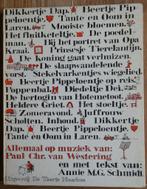 Dikkertje Dap. Beertje Pip
peloentje. Tante en Oom in
Laren. Mooiste bloemen.
Het fluitketeltje. De poedel-
man. Bij het portret van Opa
Kraal. Prinsesje Tierelantijn.
De koning gaat verhuizen.
De slaapwandelende
vorst. Stekelvarkentjes wiegelied.
Beertje Pippeloentje op reis.
Poppenbal. Diedeltje Dei.
De hertogin van Hotemetoot.
Heldere Griet. Het stoeltje.
Zomeravond. Juffrouw
Inhoud. Dikkertje
Dap. Beertje Pippeloentje.
Tante en Oom in Laren.
Allemaal op muziek van:
Paul Chr. van Westering
en met tekst van:
Annie M.G. Schmidt
Uitgeverij De Toorts Haarlem